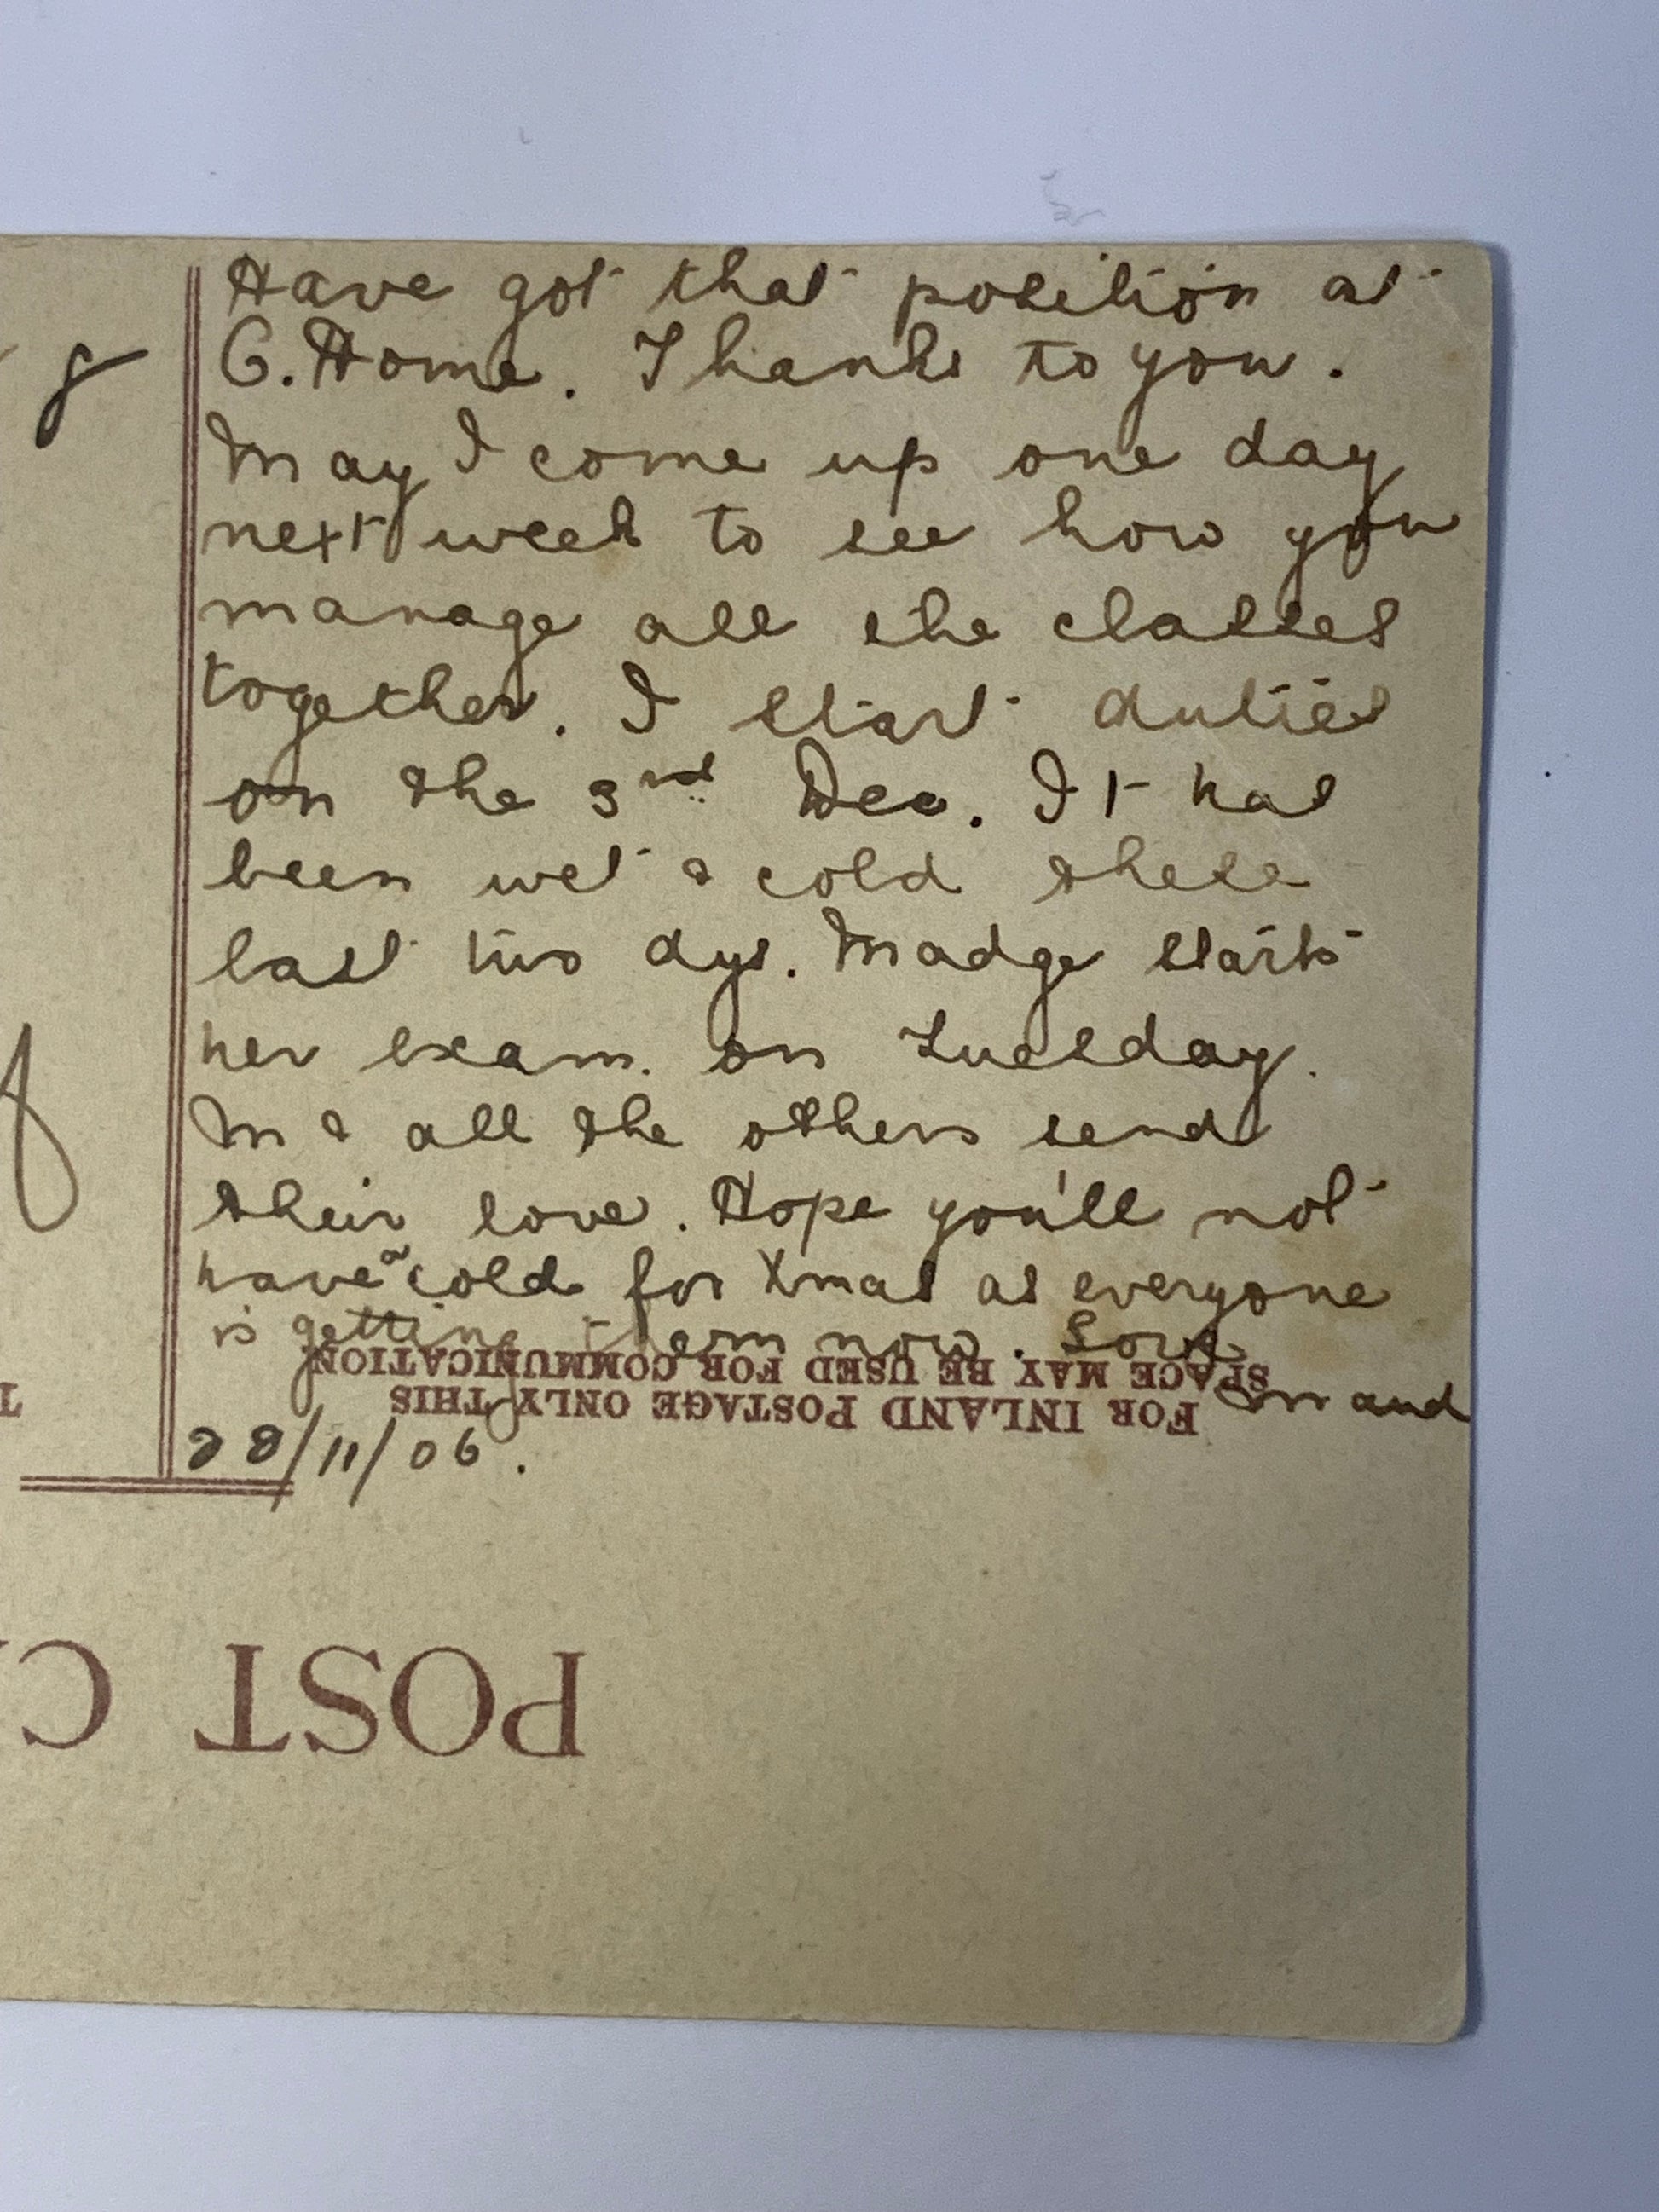 Have got that position at
C. Home. Thanks to you.
May I come up one day
next week to see how you
manage all the classes
together. I start duties
on the 3rd Dec. It has
been wet & cold these
last two dys. Madge starts
her exam. on Tuesday.
M & all the others send
their love. Hope you'll not
have a cold for Xmas as everyone
is getting them now. Love
and
28/11/06.
FOR INLAND POSTAGE ONLY THIS
SPACE MAY BE USED FOR COMMUNICATION
POST C